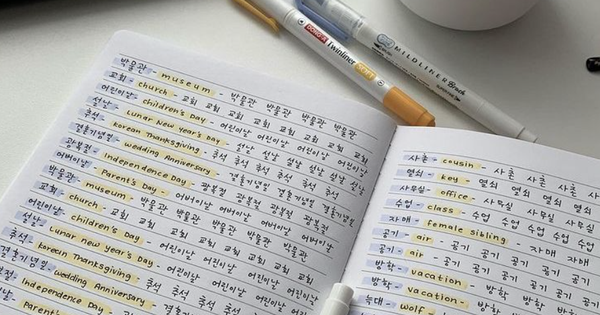 DONG-A Twinliner Soft
MILDLINER Brush
박물관 - museum - 박물관 박물관 박물관 박물관
교회 - church - 교회 교회 교회 교회 교회 교회 교회
어린이날 - children's Day - 어린이날 어린이날 어린이날
설날 - Lunar New Year's Day - 설날 설날 설날 설날 설날
추석 - Korean Thanksgiving - 추석 추석 추석 추석
결혼기념일 - wedding Anniversary - 결혼기념일 결혼기념일
광복절 - Independence Day - 광복절 광복절 광복절
어버이날 - Parent's Day - 어버이날 어버이날 어버이날
박물관 - museum - 박물관 박물관 박물관 박물관
교회 - church - 교회 교회 교회 교회 교회 교회
어린이날 - children's Day - 어린이날 어린이날 어린이날
설날 - Lunar new year's Day - 설날
Korean Thanksgiving - 추석 추석 추석
결혼기념일 - wedding Anniversary -
Independence Day -
Parent's
사촌 - cousin - 사촌 사촌 사촌
열쇠 - key - 열쇠 열쇠 열쇠 열쇠
사무실 - office - 사무실 사무실
수업 - class - 수업 수업 수업 수업
자매 - female sibling - 자매 자매
공기 - air - 공기 공기 공기
공기 - air - 공기 공기 공기 공기
방학 - vacation - 방학 방학 방학
방학 - vacation - 방학 방학
늑대 - wolf -